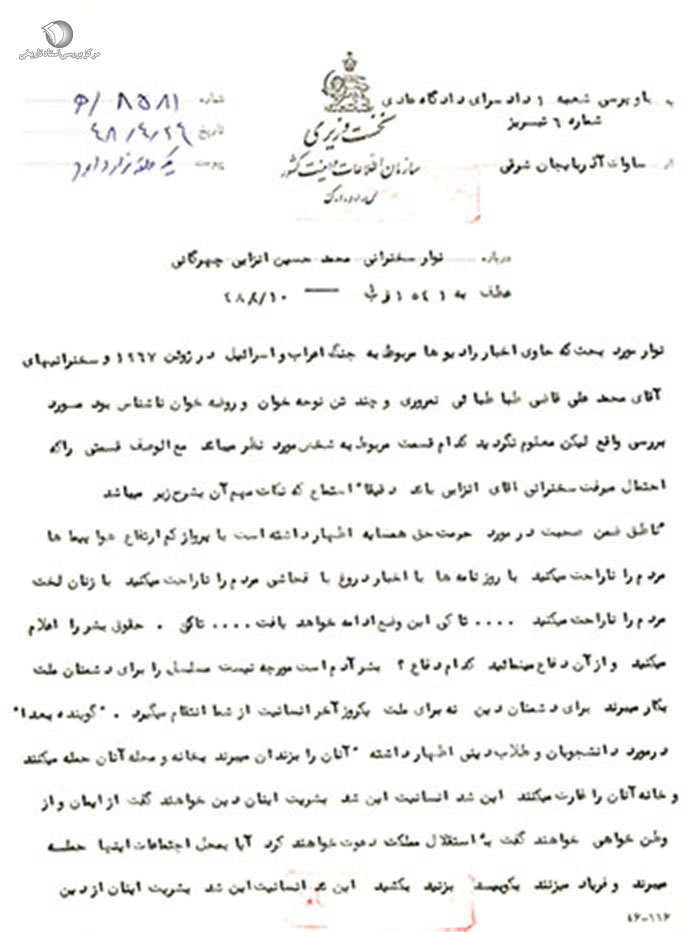 مرکز بررسی اسناد تاریخی
به بازپرس شعبه ۱ دادسرای دادگاه عادی
شماره ۶ تبریز
از ساواک آذربایجان شرقی
نخست وزیری
سازمان اطلاعات و امنیت کشور
س.ا.و.ا.ک
شماره ۸۵۸۱/ﻫ
تاریخ ۴۸/۴/۲۶
پیوست یک حلقه نوار دارد
درباره نوار سخنرانی محمد حسین انزابی چهرگانی
عطف به ۱۵۴۱
نوار مورد بحث که حاوی اخبار رادیو ها مربوط به جنگ اعراب و اسرائیل در ژوئن ۱۹۶۷ و سخنرانیهای
آقای محمد علی قاضی طبا طبائی نعروری و چند تن نوحه خوان و روضه خوان ناشناس بود مورد
بررسی واقع لیکن معلوم نگردید کدام قسمت مربوط به شخص مورد نظر میباعد مع الوصف قسمتی راکه
احتمال میرفت سخنرانی اقای انزابی باعد دقیقا" استماع که نکات مهم آن بشرح زیر میباشد
"ناطق ضمن صحبت در مورد حرمت حق همسایه اظهار داشته است با پرواز کم ارتفاع هوا پیما ها
مردم را ناراحت میکنید با روز نامه ها با اخبار دروغ با فحاشی مردم را ناراحت میکنید با زنان لخت
مردم را ناراحت میکنید .... تا کی این وضع ادامه خواهد یافت .... تاکی . حقوق بشر را اعلام
میکنید و از آن دفاع مینمائید کدام دفاع ؟ بشر آدم است مورچه نیست مسلسل را برای دشمنان ملت
بکار میبرند برای دشمنان دین نه برای ملت یکروز آخر انسانیت از شما انتقام میگیرد . "گوینده بعدا"
در مورد دانشجویان و طلاب دینی اظهار داشته "آنان را بزندان میبرند بخانه و محله آنان حمله میکنند
و خانه آنان را غارت میکنند این شد انسانیت این شد بشریت اینان دین خواهند گفت از ایمان و از
وطن خواهی خواهند گفت به استقلال مملکت دعوت خواهند کرد آیا بمحل اجتماعات اینها حمله
میبرند و فریاد میزنند بکوبید بزنید بکشید این عد انسانیت این شد بشریت اینان از دین
۴۶-۱۱۶